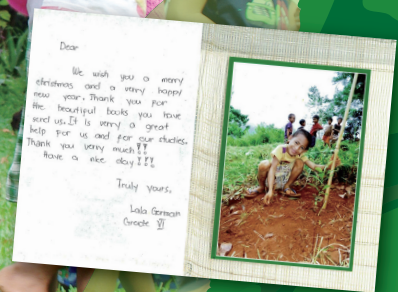 Dear
We wish you a merry
christmas and a verry happy
new year. Thank you for
the beautiful books you have
send us. It is verry a great
help for us and for our studies.
Thank you verry much!!!
Have a nice day!!!
Truly yours,
Lala
Grade VI